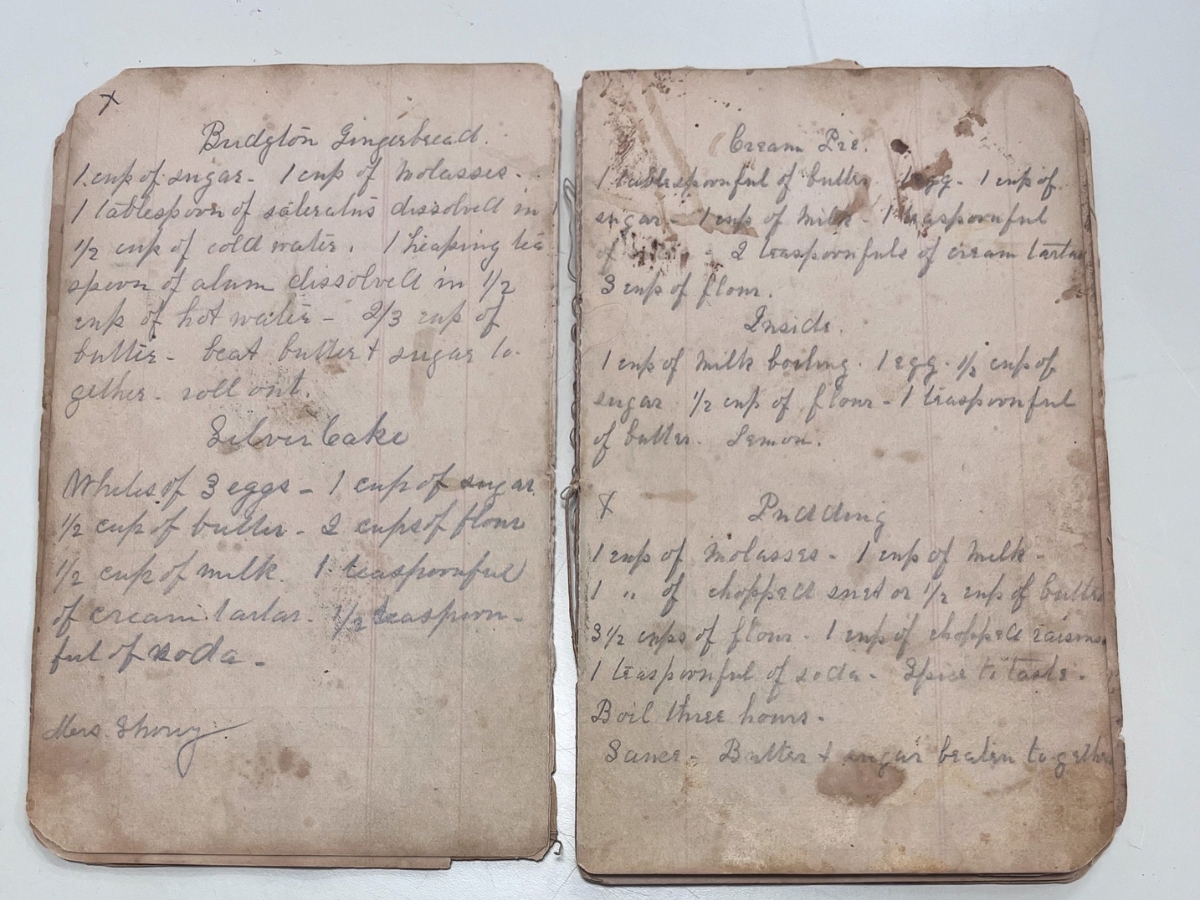 X
Bridgton Gingerbread.
1 cup of sugar. 1 cup of Molasses.
1 tablespoon of saleratus dissolved in
1/2 cup of cold water. 1 heaping tea
spoon of alum dissolved in 1/2
cup of hot water - 2/3 cup of
butter - beat butter & sugar to-
gether - roll out.
Silver Cake
Whites of 3 eggs - 1 cup of sugar.
1/2 cup of butter - 2 cups of flour
1/2 cup of milk. 1 teaspoonful
of cream tartar. 1/2 teaspoon-
ful of soda -
Mrs.
Cream Pie.
1 tablespoonful of butter 1 egg. 1 cup of
sugar - 1 cup of Milk - 1 teaspoonful
of - 2 teaspoonfuls of cream tartar
3 cup of flour.
Inside.
1 cup of Milk boiling. 1 egg. 1/2 cup of
sugar 1/2 cup of flour - 1 teaspoonful
of butter. Lemon.
X Pudding
1 cup of Molasses - 1 cup of Milk -
1 " of chopped suet or 1/2 cup of butter
3 1/2 cups of flour - 1 cup of chopped raisins.
1 teaspoonful of soda - Spice to taste.
Boil three hours.
Sauce - Butter & sugar beaten together